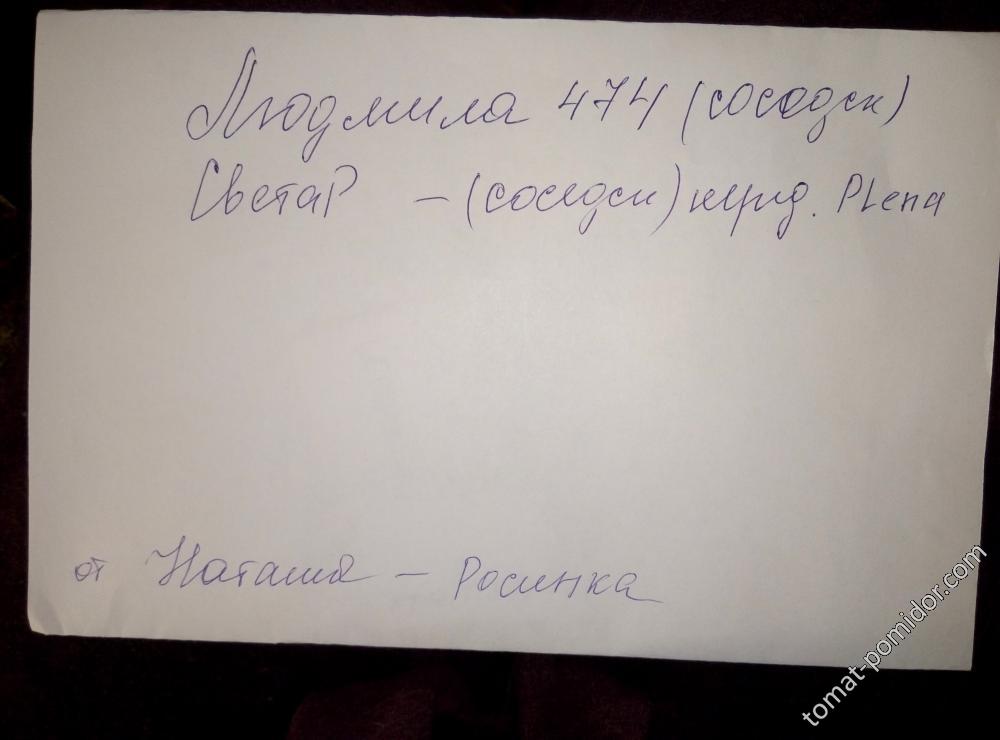 Людмила 474 (сосодск)
СветаР - (соседск)  Plena
от Наташа - Росинка
tomat-pomidor.com